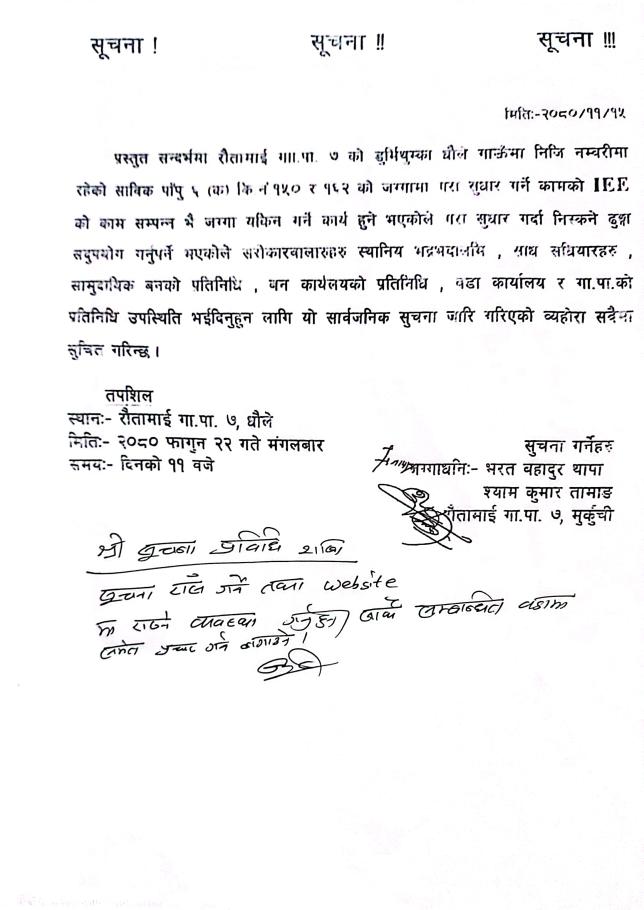 सूचना ! सूचना !! सूचना !!!
मितिः-२०८०/११/१५
प्रस्तुत सन्दर्भमा रौतामाई गाा.पा. ७ को डुम्रिथुम्का धौले गाऊँमा निजि नम्बरीमा
रहेको साविक पाँपु ५ (क) कि नं १५० र १६२ को जग्गामा घरा सुधार गर्ने कामको IEE
को काम सम्पन्न भै जग्गा यकिन गर्ने कार्य हुने भएकोले घरा सुधार गर्दा निस्कने ढुङ्गा
सदुपयोग गर्नुपर्ने भएकोले सरोकारवालाहरु स्थानिय भद्रभलादमि , साध सधियारहरु ,
सामुदायिक बनको प्रतिनिधि , वन कार्यलयको प्रतिनिधि , वडा कार्यालय र गा.पा.को
प्रतिनिधि उपस्थिति भईदिनुहुन लागि यो सार्वजनिक सुचना जारि गरिएको व्यहोरा सबैमा
सुचित गरिन्छ ।
तपशिल
स्थानः- रौतामाई गा.पा. ७, धौले
मितिः- २०८० फागुन २२ गते मंगलबार
समयः- दिनको ११ वजे
सुचना गर्नेहरु
जग्गाधनिः- भरत वहादुर थापा
श्याम कुमार तामाङ
रौतामाई गा.पा. ७, मुर्कुची
श्री सूचना प्रविधि शाखा
सूचना टाँस गर्ने तथा website
मा राख्ने व्यवस्था गर्नुहुन
सम्बन्धित वडामा
समेत गर्न लगाउने ।